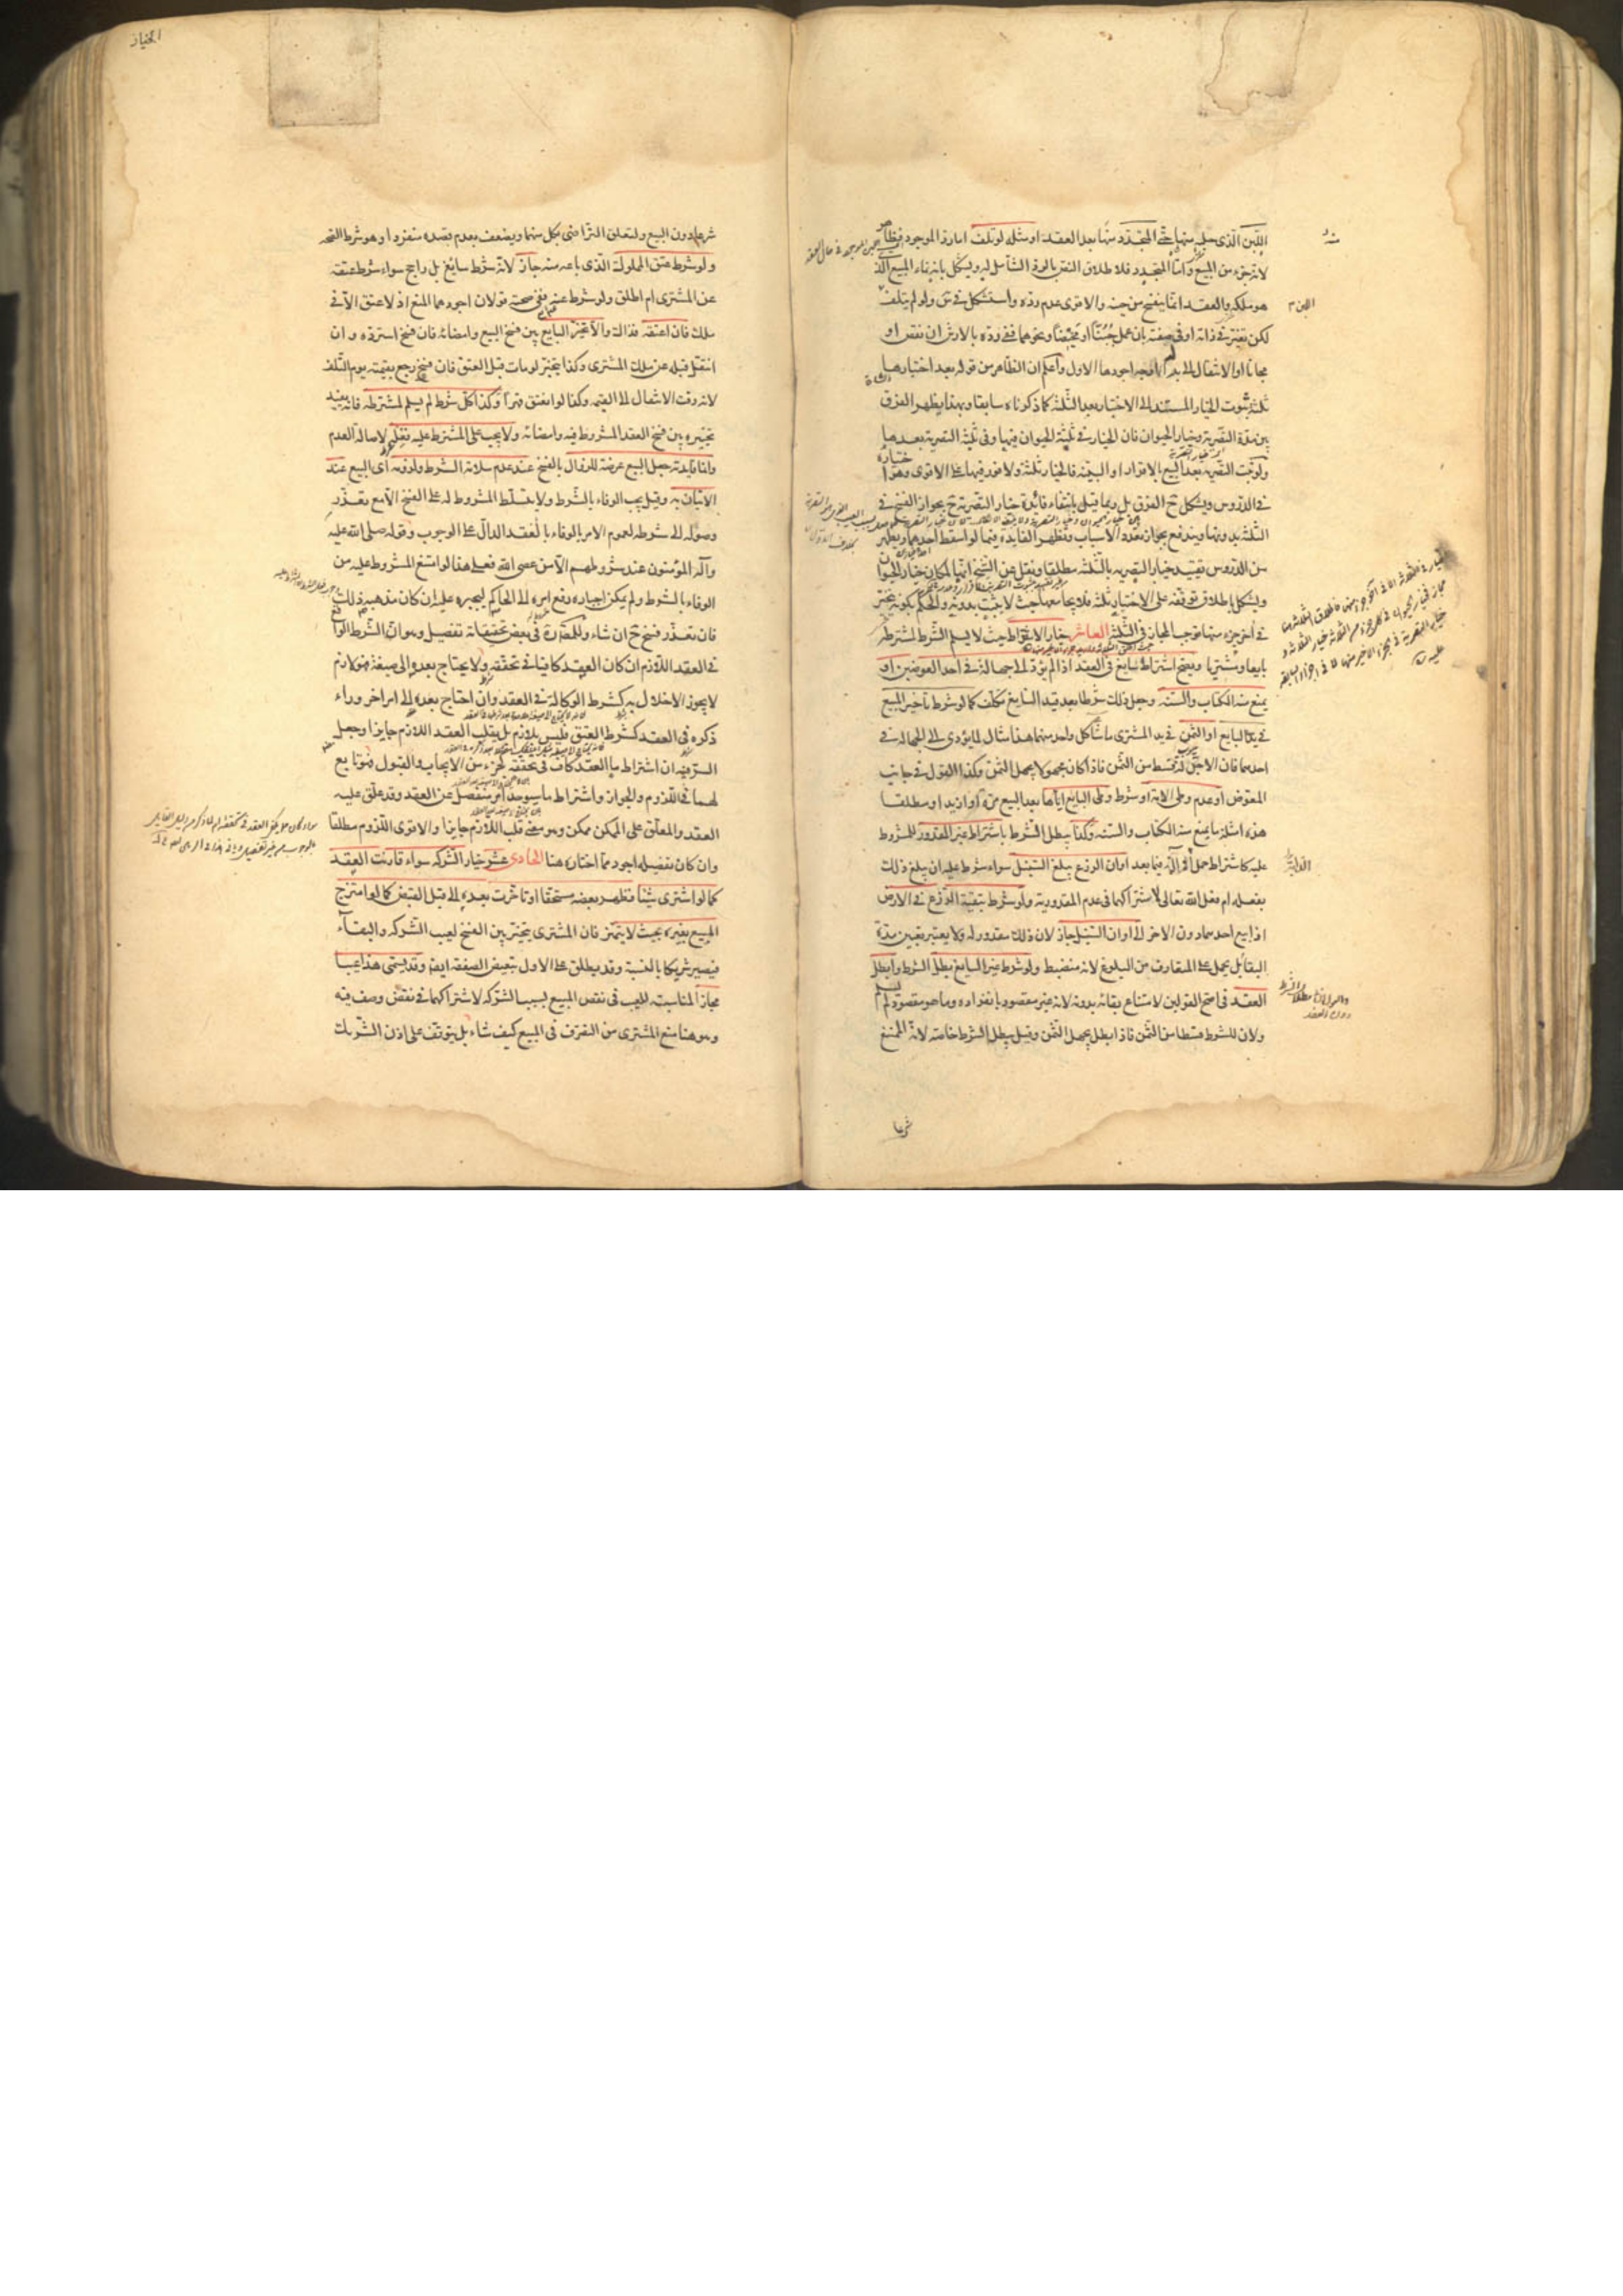 اللبن الذي حلبه منها حتى المتجدد منها بعد العقد او مثله لو تلف اما رد الموجود فظاهر
لانه جزء من المبيع واما المتجدد فلاطلاق النص بالرد الشامل له ويشكل بانه نماء المبيع الذي
هو ملكه والعقد انما ينفسخ من حينه والاقوى عدم رده واستشكل في س ولو لم يتلف
لكن تغير في ذاته او في صفته بان عمل جبنا او مخيضا ونحوهما ففي رده بالارش ان نقص او
مجانا او الانتقال الى بدله اوجه اجودها الاول واعلم ان الظاهر من قوله بعد اختبارها
ثلثة ثبوت الخيار المستند الى الاختبار بعد الثلثة كما ذكرناه سابقا وبهذا يظهر الفرق
بين مدة التصرية وخيار الحيوان فان الخيار في ثلثة الحيوان فيها وفي ثلثة التصرية بعدها
ولو ثبت التصرية بعد البيع بالاقرار او البينة فالخيار ثلثة ولا فور فيها على الاقوى وهو اختياره
في الدروس ويشكل ح الفرق بل ربما قيل بانتفاء فائدة خيار التصرية ح بجواز الفسخ في
الثلثة بدونها ويندفع بجواز تعدد الاسباب وتظهر الفايدة فيما لو اسقط احدهما ويظهر
من الدروس تقييد خيار التصرية بالثلثة مطلقا ونقل عن الشيخ انها لمكان خيار الحيوان
ويشكل باطلاق توقفه على الاختبار ثلثة فلا يجامعها حيث لا يثبت بدونه والحكم بكونه يتخير
في اخر جزء منها يوجب المجاز في الثلثة العاشر خيار الاشتراط حيث لا يسلم الشرط لمشترطه
بايعا ومشتريا ويصح اشتراط سايغ في العقد اذا لم يؤد الى جهالة في احد العوضين او
يمنع منه الكتاب والسنة وجعل ذلك شرطا بعد قيد السايغ تكلف كما لو شرط تاخير المبيع
في يد البايع او الثمن في يد المشتري ما شاء كل واحد منهما هذا مثال لما يؤدي الى الجهالة في
احدهما فان الاجل له قسط من الثمن فاذا كان مجهولا يجهل الثمن وكذا القول في جانب
المعوض او عدم وطي الامة او شرط وطي البايع اياها بعد البيع مرة او ازيد او مطلقا
هذه امثلة ما يمنع منه الكتاب والسنة وكذا يبطل الشرط باشتراط غير المقدور للمشروط
عليه كاشتراط حمل الدابة فيما بعد او ان الزرع يبلغ السنبل سواء شرط عليه ان يبلغ ذلك
بفعله ام بفعل الله تعالى لاشتراكهما في عدم المقدورية ولو شرط تبقية الزرع في الارض
اذا بيع احدهما دون الاخر الى اوان السنبل جاز لان ذلك مقدور له ولا يعتبر تعيين مدة
البقا بل يحمل على المتعارف من البلوغ لانه منضبط ولو شرط غير السايغ بطل الشرط وابطل
العقد في اصح القولين لامتناع بقائه بدونه لانه غير مقصود بانفراده وما هو مقصود لم يسلم
ولان للشرط قسطا من الثمن فاذا بطل يجهل الثمن وقيل يبطل الشرط خاصة لانه الممتنع
شرعا
شرعا دون البيع ولتعلق التراضي بكل منهما ويضعف بعدم قصده منفردا وهو شرط الصحة
ولو شرط عتق المملوك الذي باعه منه جاز لانه شرط سايغ بل راجح سواء شرط عتقه
عن المشتري ام اطلق ولو شرط عنه ففي صحته قولان اجودهما المنع اذ لا عتق الا في
ملك فان اعتقه فذاك والا تخير البايع بين فسخ البيع وامضائه فان فسخ استرده وان
انتقل قبله عن ملك المشتري وكذا يتخير لو مات قبل العتق فان فسخ رجع بقيمته يوم التلف
لانه وقت الانتقال الى القيمة وكذا لو انعتق قهرا وكذا كل شرط لم يسلم لمشترطه فانه يفيد
تخيره بين فسخ العقد المشروط فيه وامضائه ولا يجب على المشترط عليه فعله لاصالة العدم
وانما فايدته جعل البيع عرضة للزوال بالفسخ عند عدم سلامة الشرط ولزومه اي البيع عند
الاتيان به وقيل يجب الوفاء بالشرط ولا يتسلط المشروط له على الفسخ الا مع تعذر
وصوله الى شرطه لعموم الامر بالوفاء بالعقد الدال على الوجوب وقوله صلى الله عليه
وآله المؤمنون عند شروطهم الا من عصى الله فعلى هذا لو امتنع المشروط عليه من
الوفاء بالشرط ولم يمكن اجباره رفع امره الى الحاكم ليجبره عليه ان كان مذهبه ذلك
فان تعذر فسخ ح ان شاء وللمصنف ره في بعض تحقيقاته تفصيل وهو ان الشرط الواقع
في العقد اللازم ان كان العقد كافيا في تحققه ولا يحتاج بعده الى صيغة فهو لازم
لا يجوز الاخلال به كشرط الوكالة في العقد وان احتاج بعده الى امر اخر وراء
ذكره في العقد كشرط العتق فليس بلازم بل يقلب العقد اللازم جايزا وجعل
السر فيه ان اشتراط ما العقد كاف في تحققه كجزء من الايجاب والقبول فهو تابع
لهما في اللزوم والجواز واشتراط ما سيوجد امر منفصل عن العقد وقد علق عليه
العقد والمعلق على الممكن ممكن وهو معنى قلب اللازم جايزا والاقوى اللزوم مطلقا
وان كان تفصيله اجود مما اختاره هنا الحادي عشر خيار الشركة سواء قارنت العقد
كما لو اشترى شيئا فظهر بعضه مستحقا او تاخرت بعده الى قبل القبض كما لو امتزج
المبيع بغيره بحيث لا يتميز فان المشتري يتخير بين الفسخ لعيب الشركة والبقاء
فيصير شريكا بالنسبة وقد يطلق على الاول تبعض الصفقة ايضا وقد يسمى هذا عيبا
مجازا لمناسبته للعيب في نقص المبيع بسبب الشركة لاشتراكهما في نقص وصف فيه
وهو هنا منع المشتري من التصرف في المبيع كيف شاء بل يتوقف على اذن الشريك